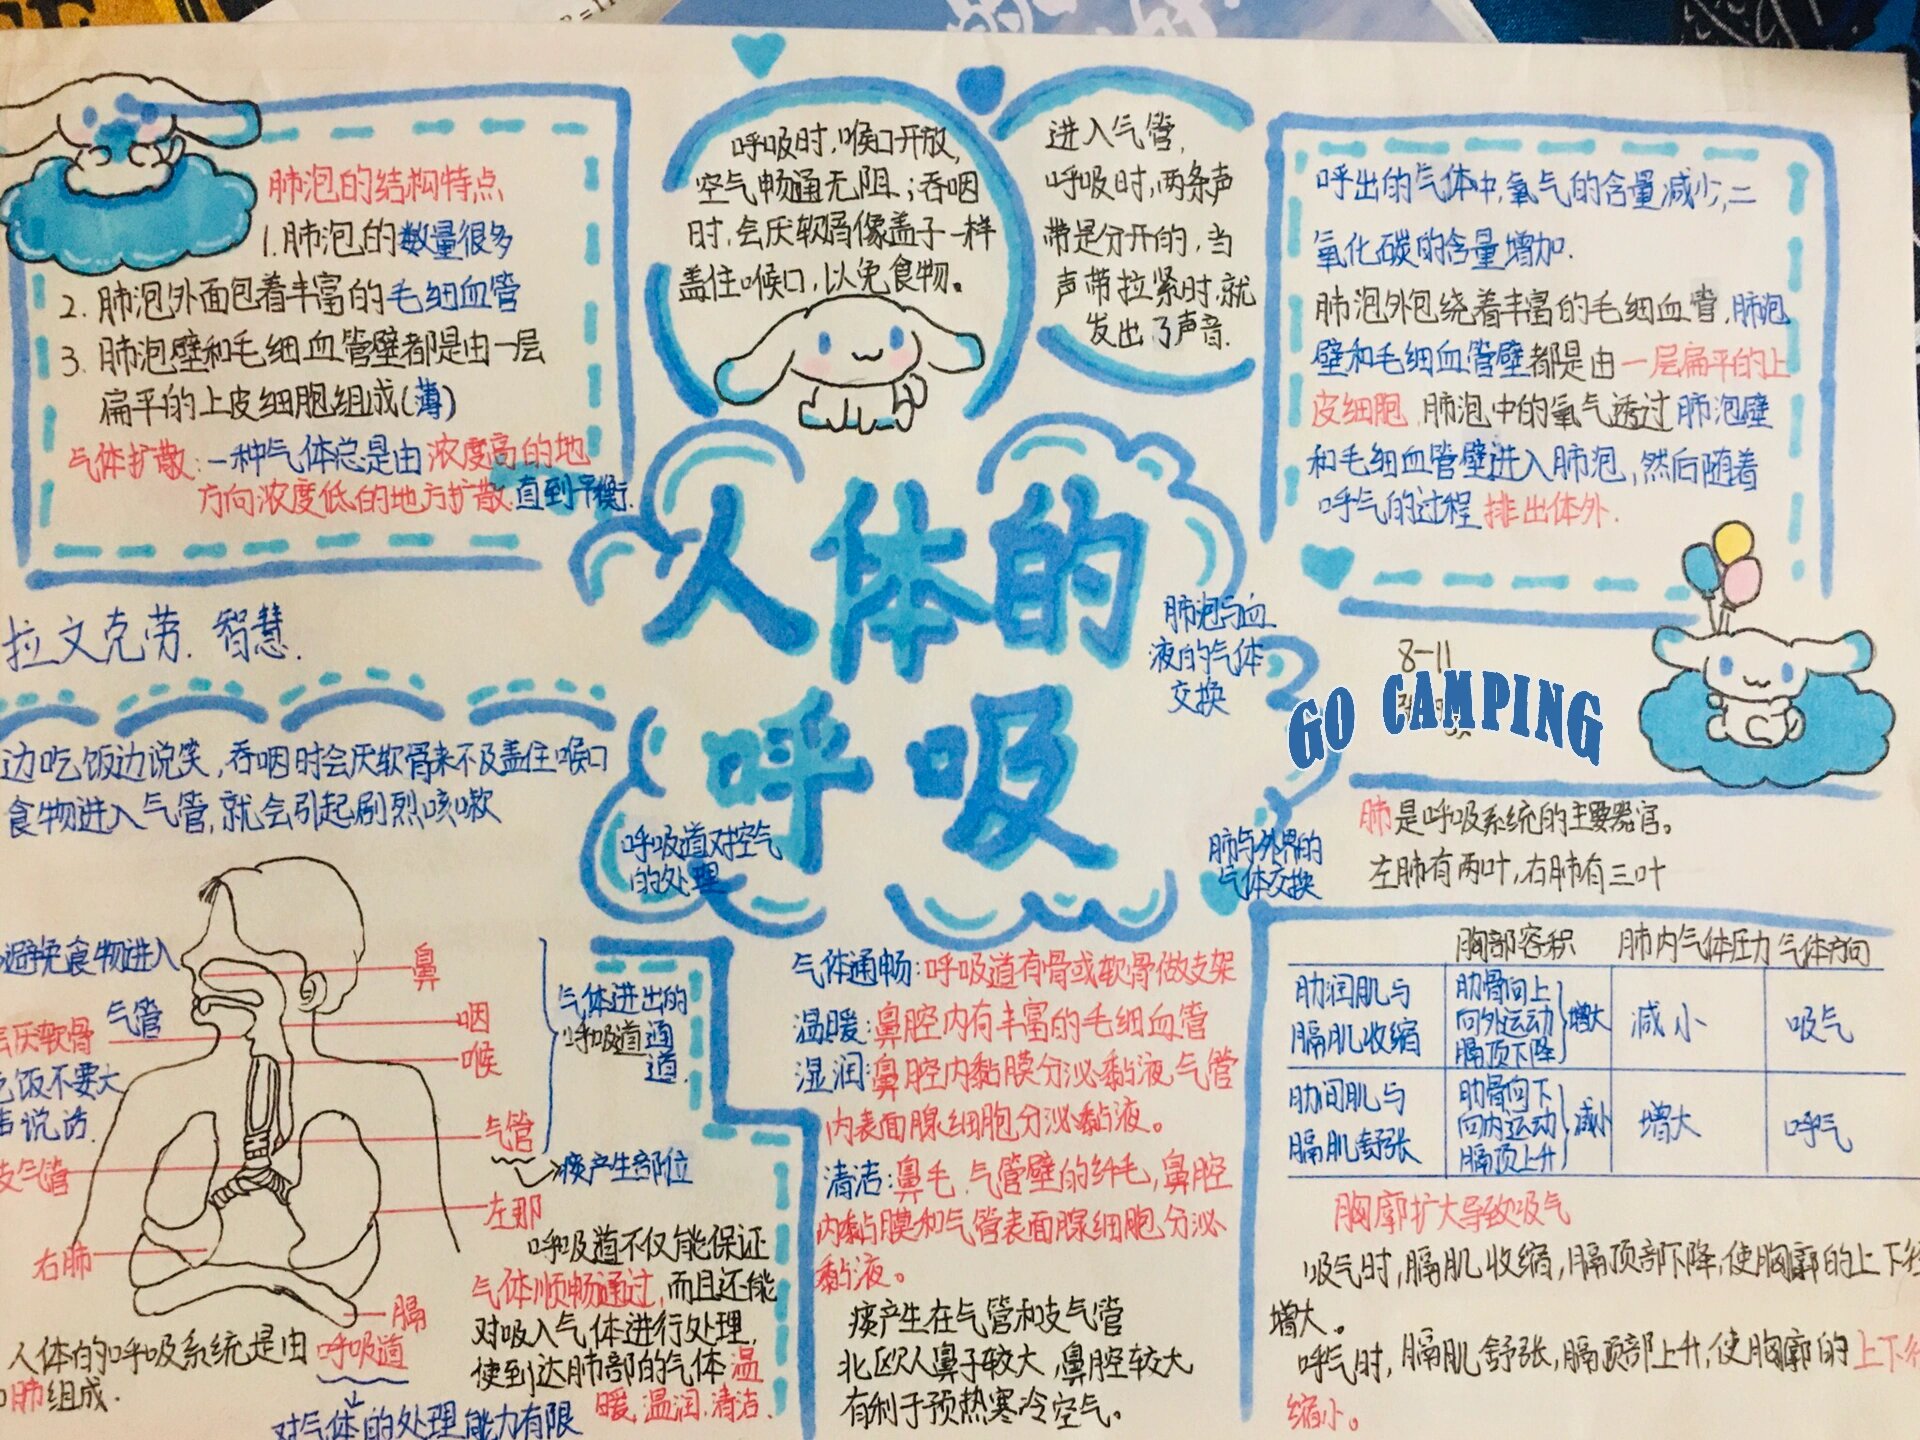 肺泡的结构特点
1.肺泡的数量很多
2.肺泡外面包着丰富的毛细血管
3.肺泡壁和毛细血管壁都是由一层
扁平的上皮细胞组成(薄)
气体扩散:一种气体总是由浓度高的地
方向浓度低的地方扩散.直到平衡.
呼吸时,喉口开放,
空气畅通无阻;吞咽
时,会厌软骨像盖子一样
盖住喉口,以免食物。
进入气管,
呼吸时,两条声
带是分开的,当
声带拉紧时,就
发出了声音.
呼出的气体中,氧气的含量减少,二
氧化碳的含量增加.
肺泡外包绕着丰富的毛细血管,肺泡
壁和毛细血管壁都是由一层扁平的上
皮细胞.肺泡中的氧气透过肺泡壁
和毛细血管壁进入肺泡,然后随着
呼气的过程排出体外.
人体的
呼吸
肺泡与血
液的气体
交换
呼吸道对空气
的处理
肺与外界的
气体交换
8-11
GO CAMPING
拉文克劳.智慧.
边吃饭边说笑,吞咽时会厌软骨来不及盖住喉口
食物进入气管,就会引起剧烈咳嗽
避免食物进入
气管
会厌软骨
吃饭不要大
声说话.
支气管
右肺
鼻
咽
喉
气管
左那
膈
气体进出的
呼吸道通
道.
痰产生部位
人体的呼吸系统是由呼吸道
和肺组成.
对气体的处理能力有限
呼吸道不仅能保证
气体顺畅通过,而且还能
对吸入气体进行处理,
使到达肺部的气体温
暖,温润,清洁.
气体通畅:呼吸道有骨或软骨做支架
温暖:鼻腔内有丰富的毛细血管
湿润:鼻腔内黏膜分泌黏液,气管
内表面腺细胞分泌黏液。
清洁:鼻毛、气管壁的纤毛,鼻腔
内黏膜和气管表面腺细胞分泌
黏液。
痰产生在气管和支气管
北欧人鼻子较大,鼻腔较大
有利于预热寒冷空气。
肺是呼吸系统的主要器官。
左肺有两叶,右肺有三叶
胸部容积 肺内气体压力 气体方向
肋润肌与
膈肌收缩
肋骨向上
向外运动
膈顶下降
增大
减小
吸气
肋间肌与
膈肌舒张
肋骨向下
向内运动
膈顶上升
减小
增大
呼气
胸廓扩大导致吸气
吸气时,膈肌收缩,膈顶部下降,使胸廓的上下径
增大。
呼气时,膈肌舒张,膈顶部上升,使胸廓的上下径
缩小。